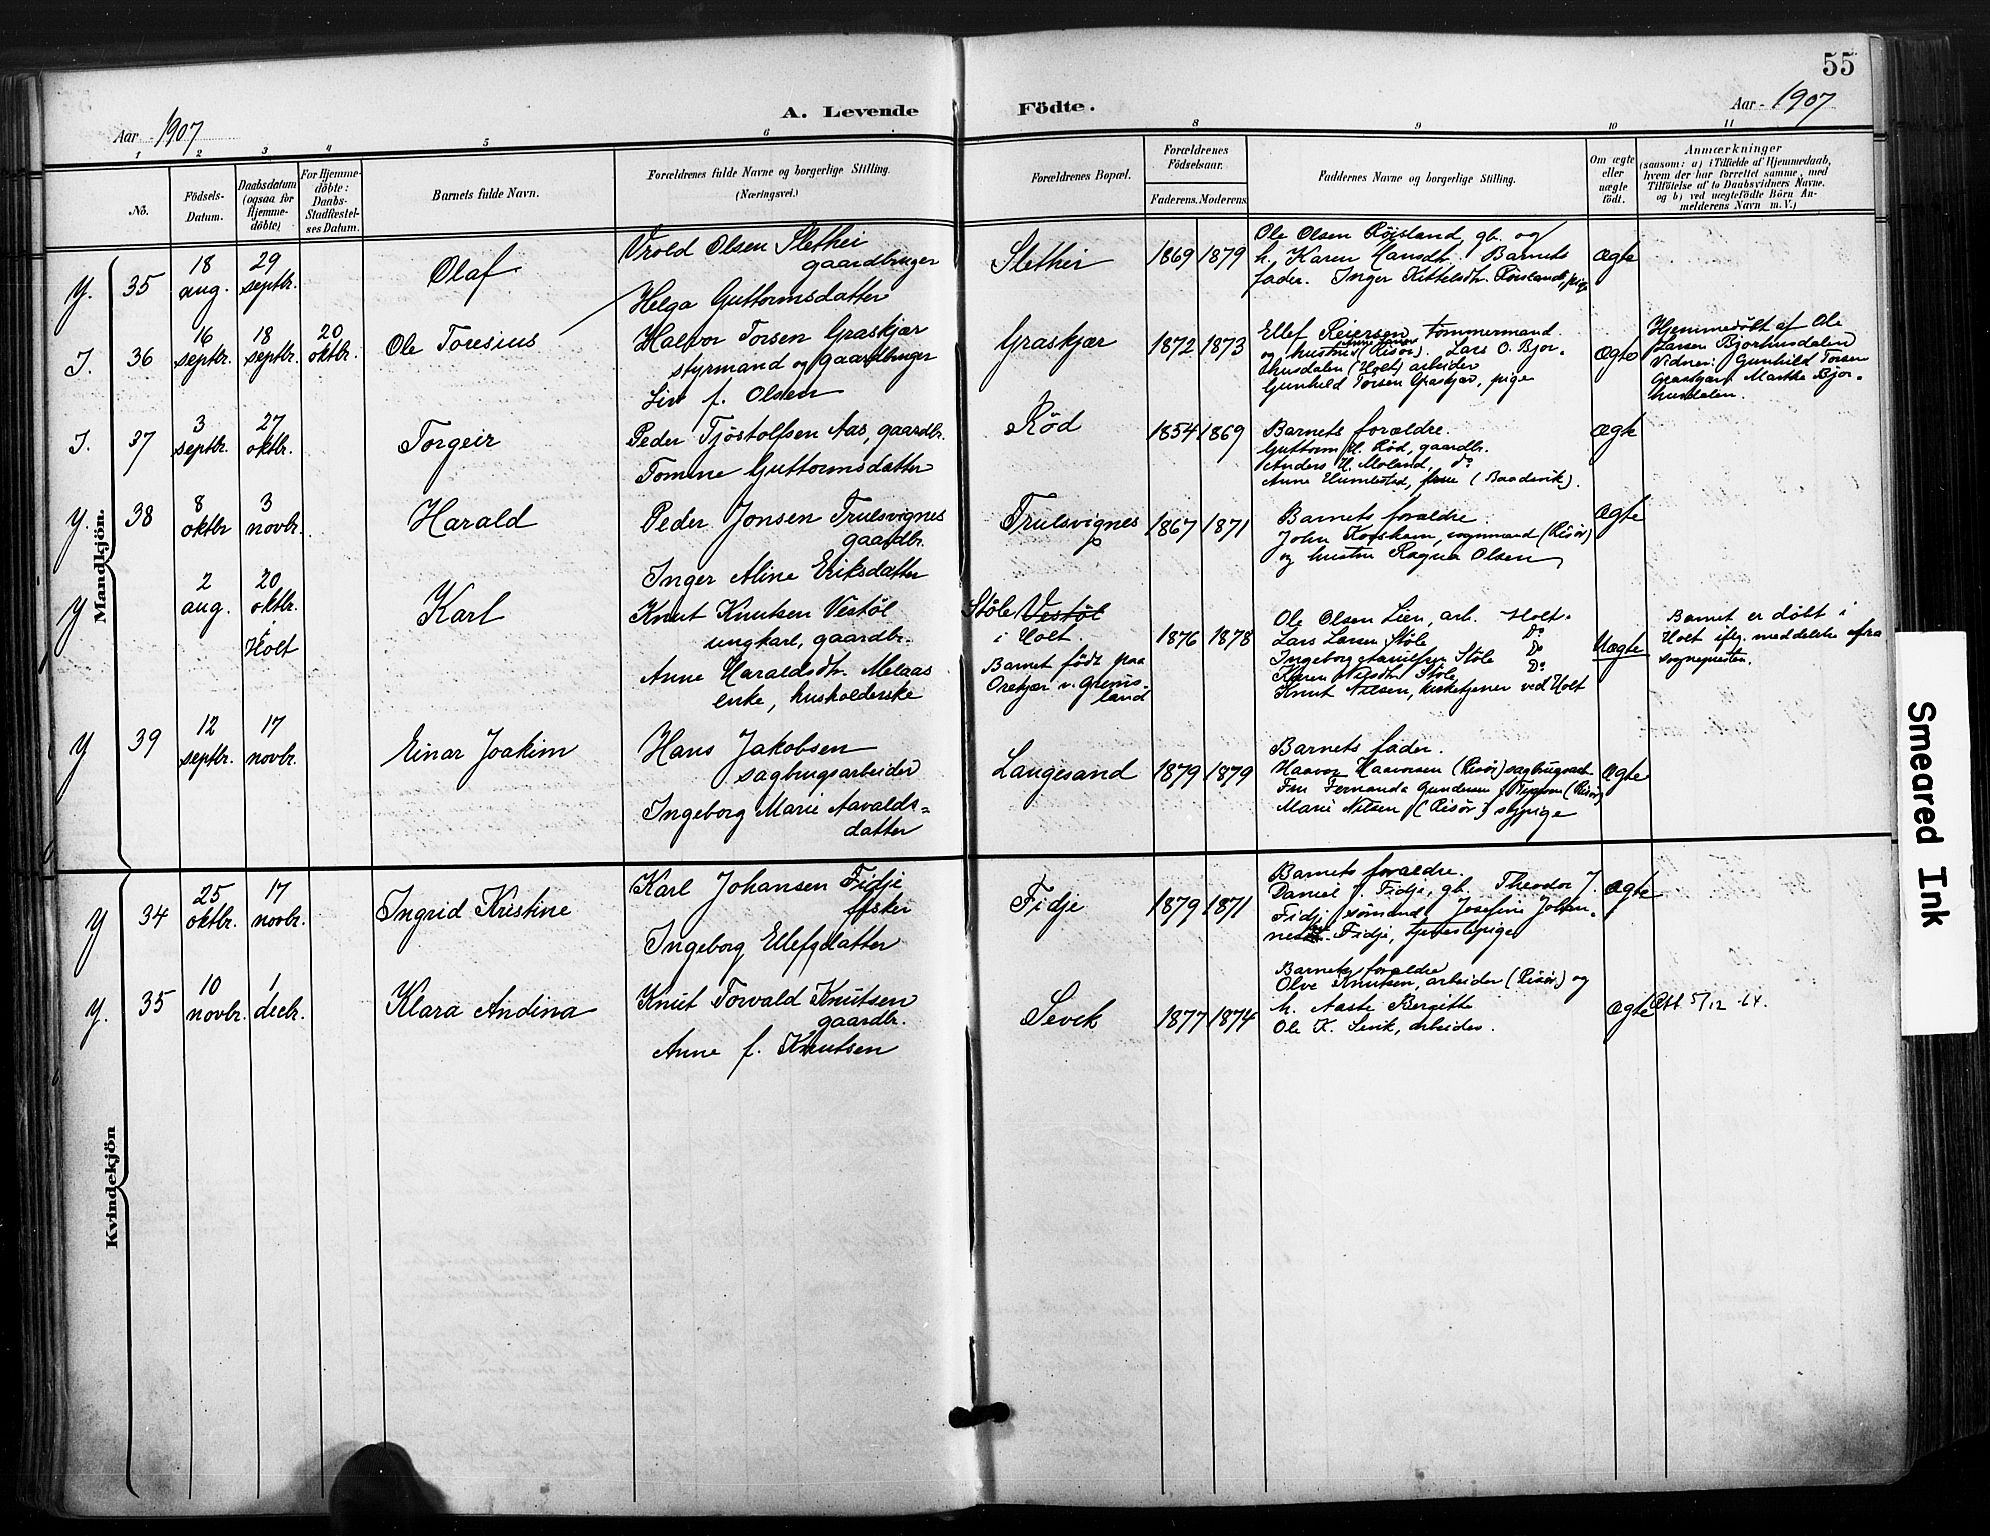 55
A. Levende Födte.
Aar 1907
Aar 1907
1 2 3 4 5 6 8 9 10 11
No.
Födsels-
Datum.
Daabsdatum
(ogsaa for
Hjemme-
döbte)
For Hjemme-
döbte:
Daabs-
Stadfæstel-
ses Datum.
Barnets fulde Navn.
Forældrenes fulde Navne og borgerlige Stilling.
(Næringsvei.)
Forældrenes Bopæl.
Forældrenes
Födselsaar.
Faderens. Moderens
Faddernes Navne og borgerlige Stilling.
Om ægte
eller
uægte
födt.
Anmærkninger
(saasom: a) i Tilfælde af Hjemmedaab,
hvem der har forrettet samme, med
Tilföielse af to Daabsvidners Navne,
og b) ved uægtefödte Börn An-
melderens Navn m. V.)
Mandkjön.
Y. 35
18
aug.
29
septbr.
Olaf
Vrold Olsen Slethei
gaardbruger
Helga Guttormsdatter
Slethei
1869 1879
Ole Olsen Röisland, gb. og
h. Karen Hansdt. Barnets
fader. Inger Kittelsdtr. Röisland, pige
ægte
I. 36
16
septbr.
18
septbr.
20
oktbr.
Ole Toresius
Halvor Torsen Graskjær
styrmand og gaardbruger
Liv f. Olsen
Graskjær
1872 1873
Ellef Reiersen tömmermand
og hustru (Risör). Lars O. Bjor-
husdalen (Holt) arbeider
Gunhild Torsen Graskjær, pige
ægte
Hjemmedöbt af Ole
Larsen Bjorhusdalen
Vidner: Gunhild Torsen
Graskjær, Marthe Bjor-
husdalen.
I. 37
3
septbr.
27
oktbr.
Torgeir
Peder Tjöstolfsen Aas, gaardbr.
Tomine Guttormsdatter
Röd
1854 1869
Barnets forældre.
Guttorm H. Röd, gaardbr.
Anders H. Moland, do
Anne Humlested, frue (Baadevik).
ægte
Y. 38
8
oktbr
3
novbr.
Harald
Peder Jonsen Trulsvignes
gaardbr.
Inger Aline Eriksdatter
Trulsvignes
1867 1871
Barnets forældre.
John Korsheim, vognmand (Risör)
og hustru Ragna Olsen
ægte
Y
2
aug.
20
oktbr.
i
Holt
Karl
Knut Knutsen Vestöl
ungkarl, gaardbr.
Anne Haraldsdtr. Melaas
enke, husholderske
Stöle Vestöl
i Holt.
Barnet födt paa
Orekjær v. Grims-
land
1876 1878
Ole Olsen Lien, arb. Holt.
Lars Larsen Stöle Do
Ingeborg Danielsen Stöle Do
Karen Nilsdtr. Stöle Do
Knut Nilsen, kirketjener ved Holt
Uægte
Barnet er döbt i
Holt iflg. meddelelse fra
sognepresten.
Y 39
12
septbr.
17
novbr.
Einar Joakim
Hans Jakobsen
sagbrugsarbeider
Ingeborg Marie Aavalds-
datter
Laugesand
1879 1879
Barnets fader.
Haavor Haavorsen (Risör) sagbrugsarb
Fru Fernanda Gundersen, (Risör)
Marie Nilsen (Risör) sypige
ægte
Kvindekjön
Y 34
25
oktbr.
17
novbr.
Ingrid Kristine
Karl Johansen Fidje
fisker
Ingeborg Ellefsdatter
Fidje
1879 1871
Barnets forældre.
Daniel J. Fidje, gb. Theodor J.
Fidje sömand, Josefine Johan-
nesen Fidje, tjenestepige
ægte
Y. 35
10
novbr.
1
decbr.
Klara Andina
Knut Torvald Knutsen
gaardbr.
Anne f. Knutsen
Sevik
1877 1874
Barnets forældre
Olve Knutsen, arbeider (Risör) og
h. Aaste Bergitte
Ole K. Sevik, arbeider.
ægte
Att 5/12 -64.
Smeared Ink